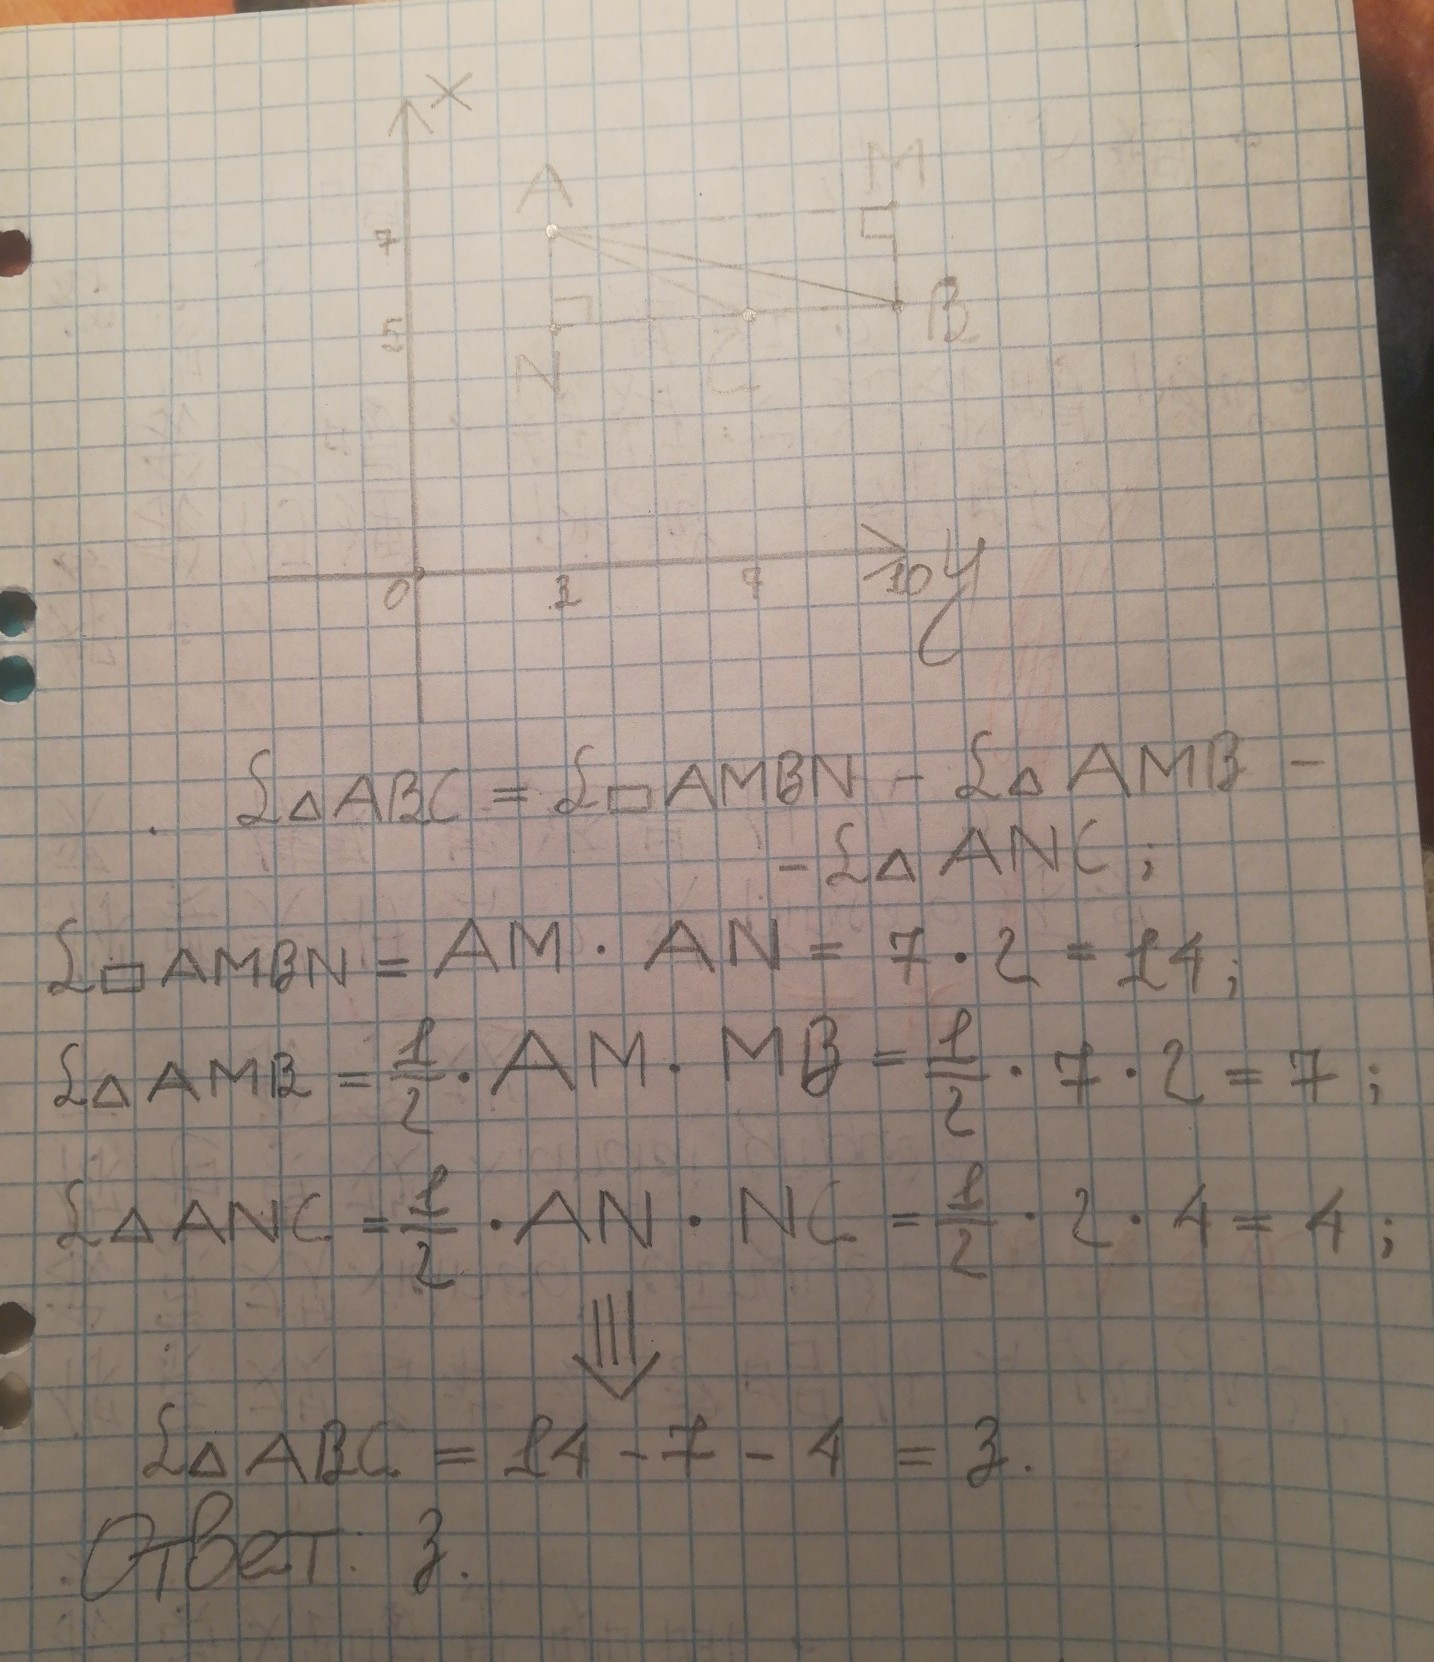 x
A M
7
B
5
N C
0 3 7 10 y
S△ABC = S□AMBN - S△AMB -
- S△ANC;
S□AMBN = AM · AN = 7 · 2 = 14;
S△AMB = 1/2 · AM · MB = 1/2 · 7 · 2 = 7;
S△ANC = 1/2 · AN · NC = 1/2 · 2 · 4 = 4;
S△ABC = 14 - 7 - 4 = 3.
Ответ: 3.